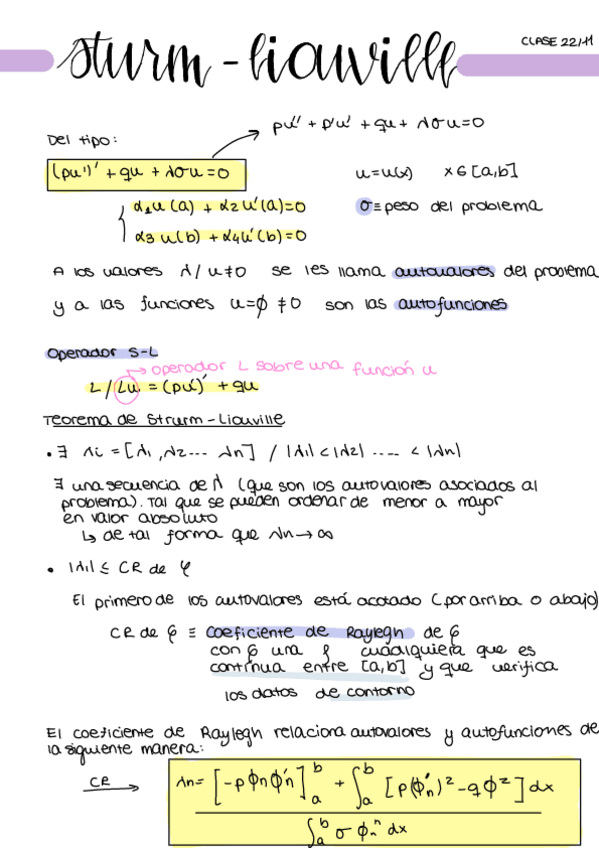 Sturm - Liouville
CLASE 22/11
Del tipo:
pu'' + p'u' + qu + λσu=0
(pu')' + qu + λσu=0
u=u(x) x∈[a,b]
α₁u(a) + α₂u'(a)=0
σ≡peso del problema
α₃u(b) + α₄u'(b)=0
A los valores λ/u≠0 se les llama autovalores del problema
y a las funciones u=ϕ≠0 son las autofunciones
Operador S-L
↳ operador L sobre una función u
L/Lu = (pu')' + qu
Teorema de Strurm-Liouville
• ∃ λi = [λ₁, λ₂... λn] / |λ₁|<|λ₂| .... < |λn|
∃ una secuencia de λ (que son los autovalores asociados al
problema). Tal que se pueden ordenar de menor a mayor
en valor absoluto
↳ de tal forma que λn→∞
• |λ₁| ≤ CR de φ
El primero de los autovalores está acotado (por arriba o abajo)
CR de φ ≡ coeficiente de Raylegh de φ
con φ una f cualquiera que es
continua entre [a,b] y que verifica
los datos de contorno
El coeficiente de Raylegh relaciona autovalores y autofunciones de
la siguiente manera:
CR → λn= [-pϕnϕ'n]ₐᵇ + ∫ₐᵇ [p(ϕ'n)² - qϕ²]dx
∫ₐᵇ σ ϕnⁿ dx